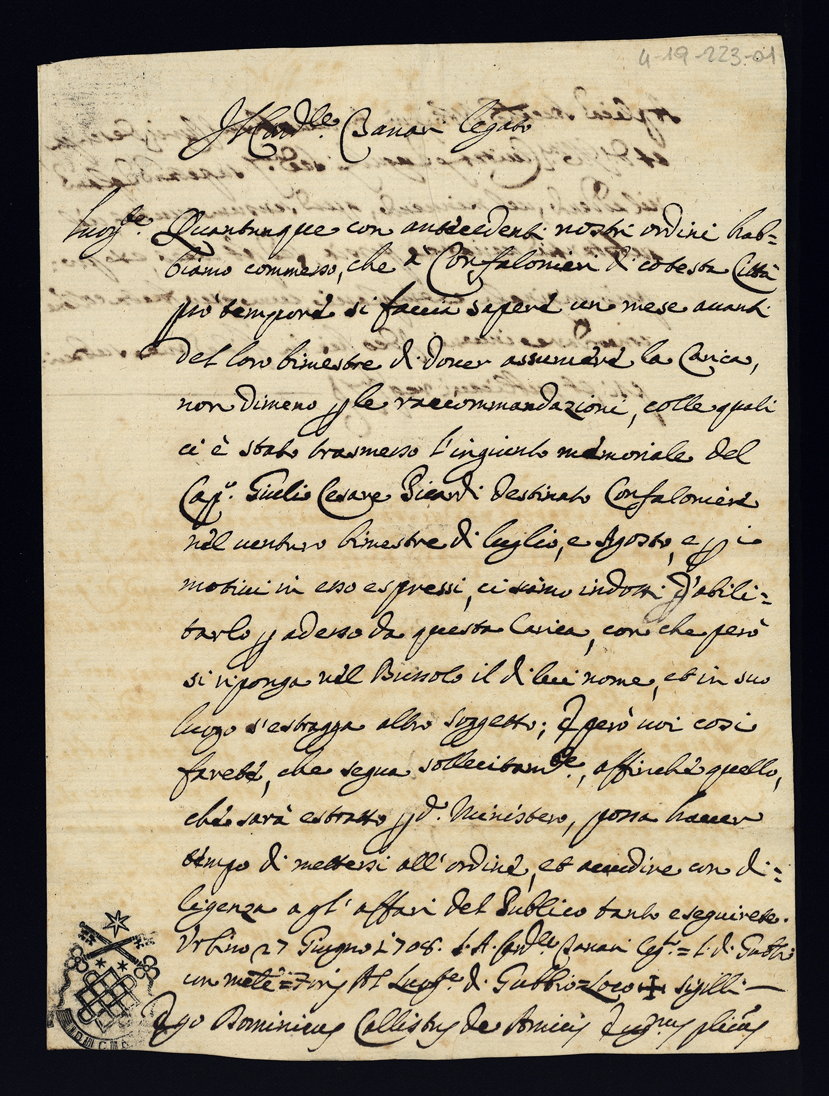 4-19-223-01
Il Card.le Banari legato
Luog.te Quantunque con antecedenti nostri ordini hab=
biamo commesso, che a Confalonieri di cotesta Città
pro tempore si faccia sapere un mese avanti
del loro bimestre di dover assumere la Carica,
non dimeno p le raccommandazioni, colle quali
ci è stato trasmesso l'ingiunto memoriale del
Cap.o Giulio Cesare Picardi destinato Confaloniere
nel venturo bimestre di luglio, e Agosto, e p i
motivi in esso espressi, ci siamo indotti d'abili=
tarlo p adesso da questa Carica, con che però
si riponga nel Bussolo il di lui nome, et in suo
luogo s'estragga altro soggetto; E però voi così
farete, che segua sollecitam.te, affinche quello,
che sarà estratto p d.o Ministero, possa hauer
tempo di mettersi all'ordine, et accudire con di=
ligenza agl'affari del Publico tanto eseguirete.
Urbino 27 Giugno 1708. L. A. Card.le Banari Leg.o = L. di Gubb.o
un mete = Al Luog.te di Gubbio = Loco + sigilli —
Ego Dominicus Callistus de Amicis